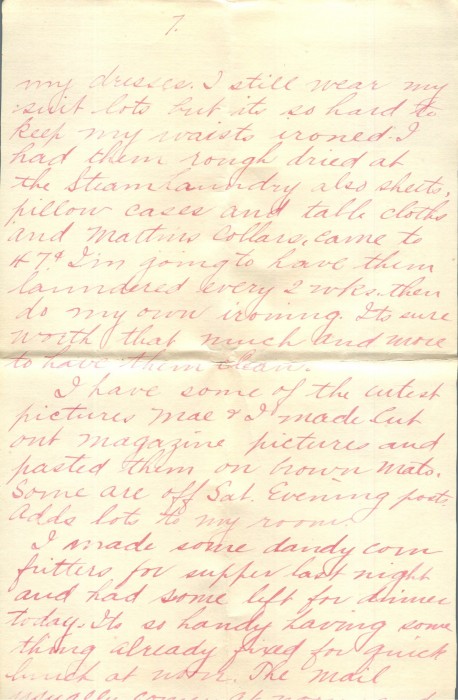 7.
my dresses. I still wear my
suit lots but its so hard to
keep my waists ironed. I
had them rough dried at
the Steam Laundry also sheets,
pillow cases and table cloths
and Mattins Collars, came to
47¢ I'm going to have them
laundered every 2 wks. then
do my own ironing. Its sure
worth that much and more
to have them clean.
I have some of the cutest
pictures Mae & I made. Cut
out magazine pictures and
pasted them on brown mats.
Some are off Sat. Evening posts.
Adds lots to my room.
I made some dandy corn
fritters for supper last night
and had some left for dinner
today. Its so handy having some
thing already fixed for quick
lunch at noon. The mail
usually comes at noon